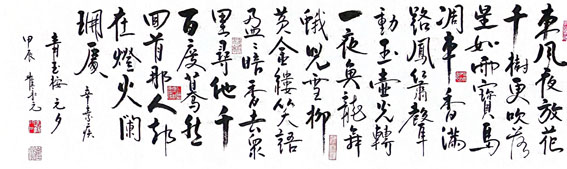 東風夜放花
千樹更吹落
星如雨寶馬
凋車香滿
路鳳簫聲
動玉壺光轉
一夜魚龍舞
蛾兒雪柳
黃金縷笑語
盈〻暗香去衆
里尋他千
百度驀然
回首那人却
在燈火闌
珊處 辛棄疾
青玉案 元夕
甲辰